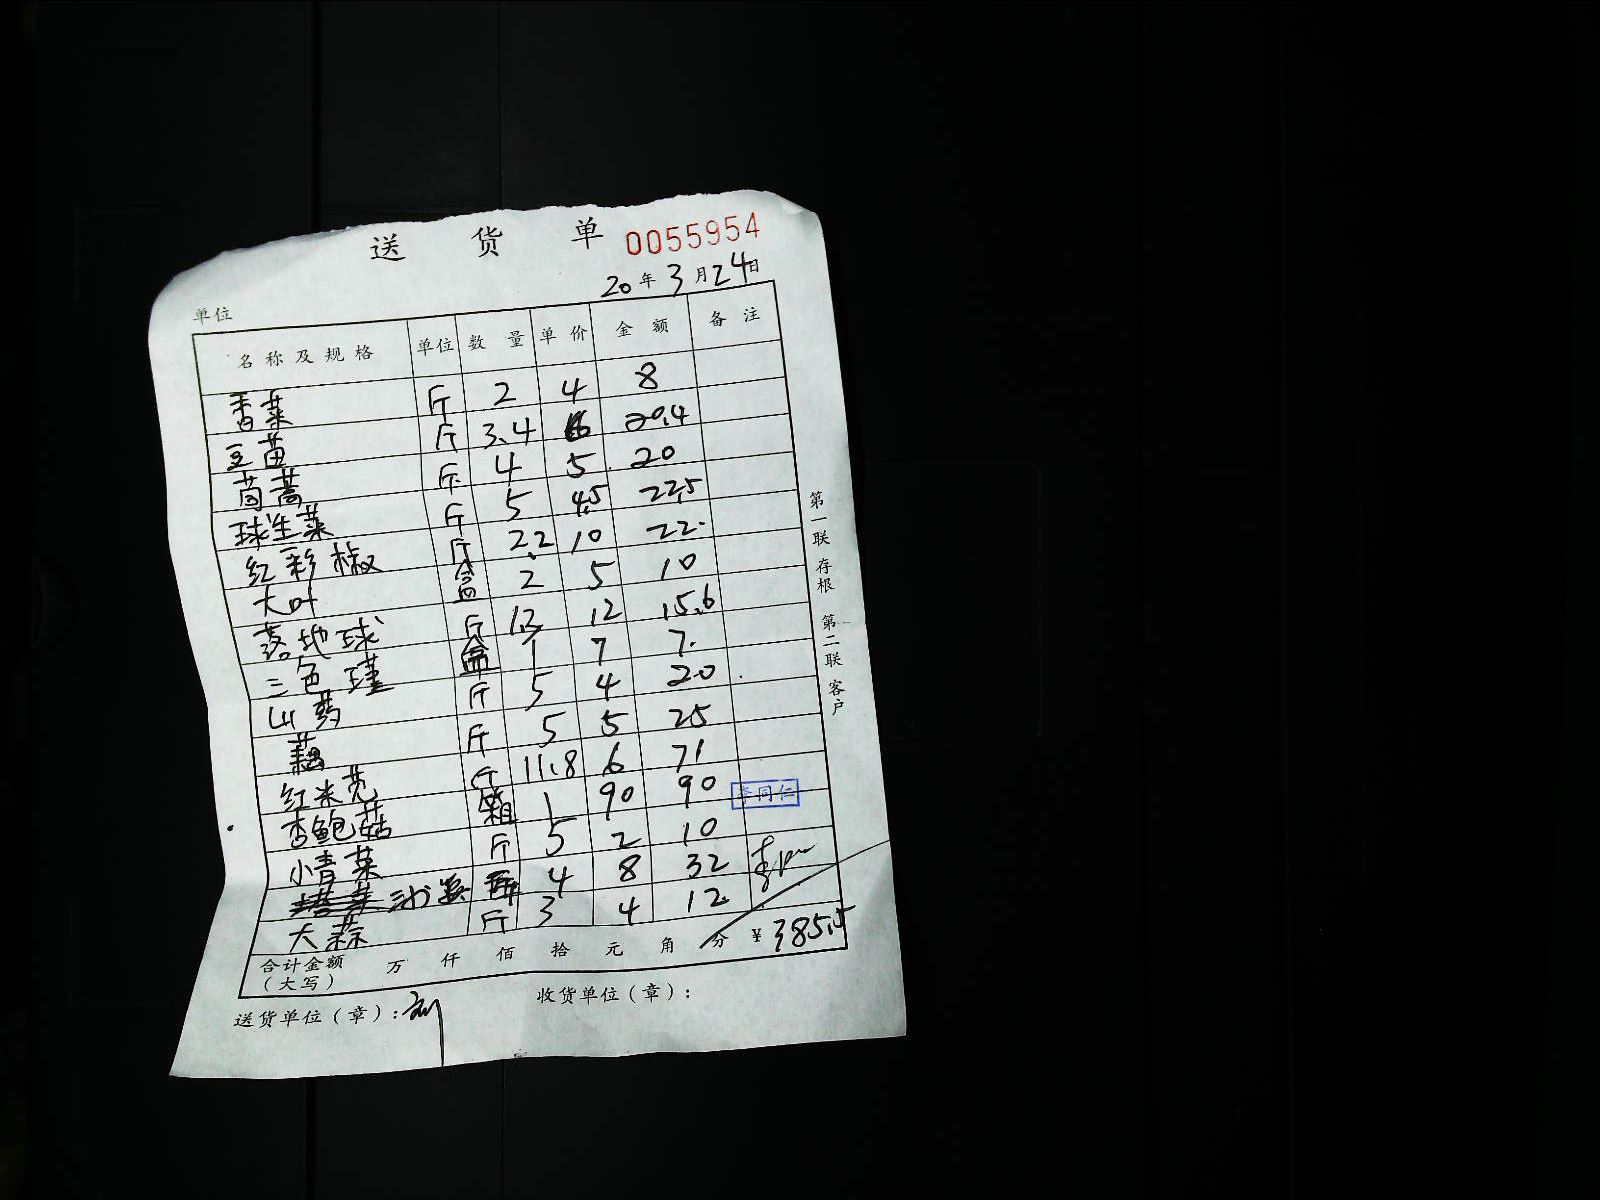 送 货 单 0055954
20年3月24日
单位
名称及规格 单位 数量 单价 金额 备注
香菜 斤 2 4 8
豆苗 斤 3.4 6 20.4
茼蒿 斤 4 5 20
球生菜 斤 5 4.5 22.5
红彩椒 斤 2.2 10 22.
大叶 盒 2 5 10
落地球 斤 1.3 12 15.6
三色瑾 盒 1 7 7.
山药 斤 5 4 20
藕 斤 5 5 25
红米苋 斤 11.8 6 71
杏鲍菇 箱 1 90 90 李同仁
小青菜 斤 5 2 10
沙姜 4 8 32
大蒜 斤 3 4 12.
合计金额(大写) 万 仟 佰 拾 元 角 分 ¥385.5
送货单位(章):刘 收货单位(章):
第一联 存根 第二联 客户